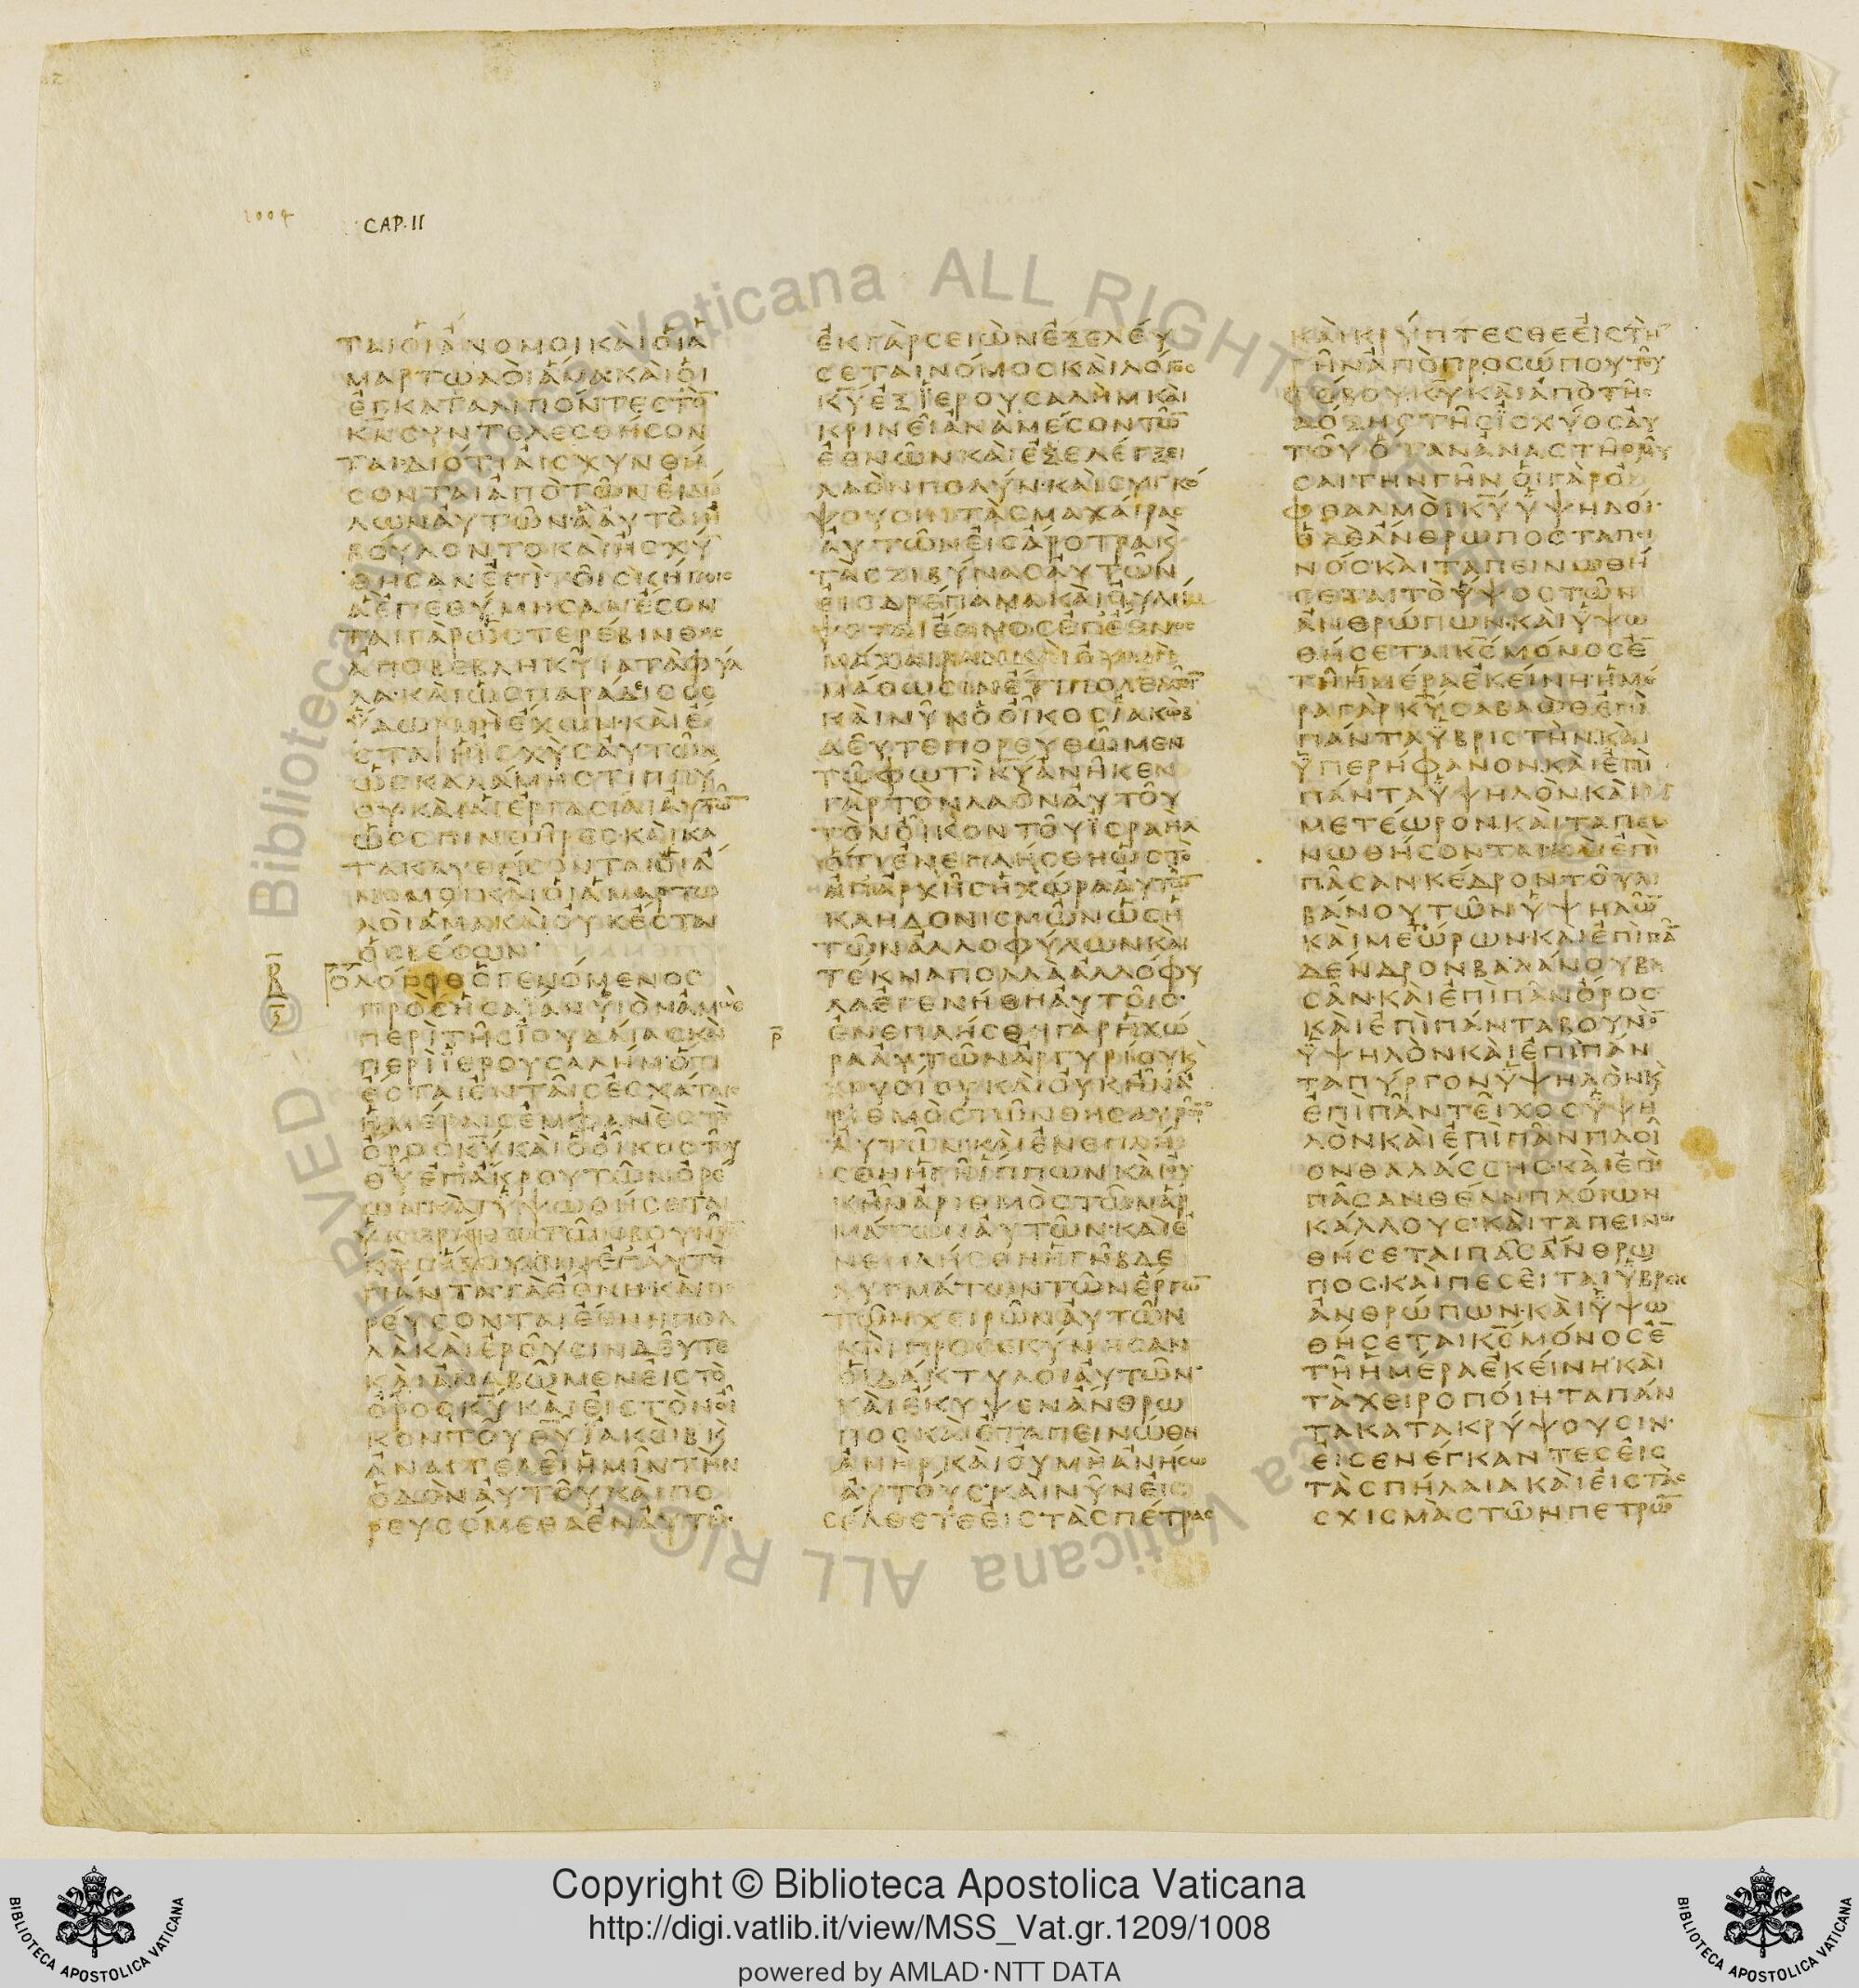 1004
CAP. II
ΤΑΙΟΙΑΝΟΜΟΙΚΑΙΟΙΑ
ΜΑΡΤΩΛΟΙΑΜΑΚΑΙΟΙ
ΕΓΚΑΤΑΛΙΠΟΝΤΕCΤΟ̅
Κ̅Ν̅CΥΝΤΕΛΕCΘΗCΟΝ
ΤΑΙ·ΔΙΟΤΙΑΙCΧΥΝΘΗ
CΟΝΤΑΙΑΠΟΤΩΝΕΙΔΩ
ΛΩΝΑΥΤΩΝ·ΑΑΥΤΟΙΗ
ΒΟΥΛΟΝΤΟΚΑΙΗCΧΥ̅
ΘΗCΑΝΕΠΙΤΟΙCΚΗΠΟΙC
ΑΕΠΕΘΥΜΗCΑΝΕCΟΝ
ΤΑΙΓΑΡΩCΤΕΡΕΒΙΝΘΟC
ΑΠΟΒΕΒΛΗΚΥΙΑΤΑΦΥΛ
ΛΑ·ΚΑΙΩCΠΑΡΑΔΕΙCΟC
ΫΔΩΡΜΗΕΧΩΝ·ΚΑΙΕ
CΤΑΙΗΙCΧΥCΑΥΤΩΝ
ΩCΚΑΛΑΜΗCΤΙΠΠΥ
ΟΥ·ΚΑΙΑΙΕΡΓΑCΙΑΙΑΥΤΩ̅
ΩCCΠΙΝΘΗΡΕC·ΚΑΙΚΑ
ΤΑΚΑΥΘΗCΟΝΤΑΙΟΙΑ
ΝΟΜΟΙΚΑΙΟΙΑΜΑΡΤΩ
ΛΟΙΑΜΑΚΑΙΟΥΚΕCΤΑΙ
ΟCΒΕCΩΝ·
ΟΛΟΓΟCΟΓΕΝΟΜΕΝΟC
ΠΡΟCΗCΑΙΑΝΥΙΟΝΑΜΩC
ΠΕΡΙΤΗCΪΟΥΔΑΙΑCΚΑΙ
ΠΕΡΙΪΕΡΟΥCΑΛΗΜ·ΟΤΙ
ΕCΤΑΙΕΝΤΑΙCΕCΧΑΤΑΙC
ΗΜΕΡΑΙCΕΜΦΑΝΕCΤΟ
ΟΡΟCΚ̅Υ̅ΚΑΙΟΟΙΚΟCΤΟΥ
Θ̅Υ̅ΕΠΑΚΡΟΥΤΩΝΟΡΕ
ΩΝΚΑΙΥΨΩΘΗCΕΤΑΙ
ΥΠΕΡΑΝΩΤΩΝΒΟΥΝΩ̅
ΚΑΙΗΞΟΥCΙΝΕΠΑΥΤΟ
ΠΑΝΤΑΤΑΕΘΝΗ·ΚΑΙΠΟ
ΡΕΥCΟΝΤΑΙΕΘΝΗΠΟΛ
ΛΑΚΑΙΕΡΟΥCΙΝΔΕΥΤΕ
ΚΑΙΑΝΑΒΩΜΕΝΕΙCΤΟ
ΟΡΟCΚ̅Υ̅ΚΑΙΕΙCΤΟΝΟΙ
ΚΟΝΤΟΥΘ̅Υ̅ΪΑΚΩΒΚΑΙ
ΑΝΑΓΓΕΛΕΙΗΜΙΝΤΗΝ
ΟΔΟΝΑΥΤΟΥΚΑΙΠΟ
ΡΕΥCΟΜΕΘΑΕΝΑΥΤΗ·
ΕΚΓΑΡCΕΙΩΝΕΞΕΛΕΥ
CΕΤΑΙΝΟΜΟCΚΑΙΛΟΓΟC
Κ̅Υ̅ΕΞΪΕΡΟΥCΑΛΗΜΚΑΙ
ΚΡΙΝΕΙΑΝΑΜΕCΟΝΤΩ̅
ΕΘΝΩΝΚΑΙΕΞΕΛΕΓΞΕΙ
ΛΑΟΝΠΟΛΥΝ·ΚΑΙCΥΓΚΟ
ΨΟΥCΙΝΤΑCΜΑΧΑΙΡΑC
ΑΥΤΩΝΕΙCΑΡΟΤΡΑΚΑΙ
ΤΑCΖΙΒΥΝΑCΑΥΤΩΝ
ΕΙCΔΡΕΠΑΝΑΚΑΙΟΥΛΗΜ
ΨΕΤΑΙΕΘΝΟCΕΠΕΘΝΟC
ΜΑΧΑΙΡΑΝΚΑΙΟΥΜΗ
ΜΑΘΩCΙΝΕΤΙΠΟΛΕΜΕΙ̅
ΚΑΙΝΥΝΟΟΙΚΟCΪΑΚΩΒ
ΔΕΥΤΕΠΟΡΕΥΘΩΜΕΝ
ΤΩΦΩΤΙΚ̅Υ̅ΑΝΗΚΕΝ
ΓΑΡΤΟΝΛΑΟΝΑΥΤΟΥ
ΤΟΝΟΙΚΟΝΤΟΥΪCΡΑΗΛ
ΟΤΙΕΝΕΠΛΗCΘΗΩCΤΟ
ΑΠΑΡΧΗCΗΧΩΡΑΑΥΤΩ̅
ΚΛΗΔΟΝΙCΜΩΝΩCΗ
ΤΩΝΑΛΛΟΦΥΛΩΝΚΑΙ
ΤΕΚΝΑΠΟΛΛΑΑΛΛΟΦΥ
ΛΑΕΓΕΝΗΘΗΑΥΤΟΙC·
ΕΝΕΠΛΗCΘΗΓΑΡΗΧΩ
ΡΑΑΥΤΩΝΑΡΓΥΡΙΟΥΚΑΙ
ΧΡΥCΙΟΥΚΑΙΟΥΚΗΝΑ
ΡΙΘΜΟCΤΩΝΘΗCΑΥΡΩ̅
ΑΥΤΩΝ·ΚΑΙΕΝΕΠΛΗ
CΘΗΗΓΗΙΠΠΩΝΚΑΙΟΥ
ΚΗΝΑΡΙΘΜΟCΤΩΝΑΡ
ΜΑΤΩΝΑΥΤΩΝ·ΚΑΙΕ
ΝΕΠΛΗCΘΗΗΓΗΒΔΕ
ΛΥΓΜΑΤΩΝΤΩΝΕΡΓΩ̅
ΤΩΝΧΕΙΡΩΝΑΥΤΩΝ
ΚΑΙΠΡΟCΕΚΥΝΗCΑΝ
ΟΙΔΑΚΤΥΛΟΙΑΥΤΩΝ·
ΚΑΙΕΚΥΨΕΝΑΝΘΡΩ
ΠΟCΚΑΙΕΤΑΠΕΙΝΩΘΗ
ΑΝΗΡ·ΚΑΙΟΥΜΗΑΝΗCΩ
ΑΥΤΟΥC·ΚΑΙΝΥΝΕΙC
CΕΛΘΕΤΕΕΙCΤΑCΠΕΤΡΑC
ΚΑΙΚΡΥΠΤΕCΘΕΕΙCΤΗ̅
ΓΗΝΑΠΟΠΡΟCΩΠΟΥΤΟΥ
ΦΟΒΟΥΚ̅Υ̅ΚΑΙΑΠΟΤΗC
ΔΟΞΗCΤΗCΪCΧΥΟCΑΥ
ΤΟΥΟΤΑΝΑΝΑCΤΗΘΡΑΥ
CΑΙΤΗΝΓΗΝΟΙΓΑΡΟ
ΦΘΑΛΜΟΙΚ̅Υ̅ΥΨΗΛΟΙ·
ΟΔΕΑΝΘΡΩΠΟCΤΑΠΕΙ
ΝΟC·ΚΑΙΤΑΠΕΙΝΩΘΗ
CΕΤΑΙΤΟΥΨΟCΤΩΝ
ΑΝΘΡΩΠΩΝ·ΚΑΙΫΨΩ
ΘΗCΕΤΑΙΚ̅C̅ΜΟΝΟCΕ̅
ΤΗΗΜΕΡΑΕΚΕΙΝΗ·ΗΜΕ
ΡΑΓΑΡΚ̅Υ̅CΑΒΑΩΘΕΠΙ
ΠΑΝΤΑΫΒΡΙCΤΗΝ·ΚΑΙ
ΫΠΕΡΗΦΑΝΟΝ·ΚΑΙΕΠΙ
ΠΑΝΤΑΫΨΗΛΟΝΚΑΙ
ΜΕΤΕΩΡΟΝ·ΚΑΙΤΑΠΕΙ
ΝΩΘΗCΟΝΤΑΙΚΑΙΕΠΙ
ΠΑCΑΝΚΕΔΡΟΝΤΟΥΛΙ
ΒΑΝΟΥΤΩΝΫΨΗΛΩ̅
ΚΑΙΜΕΤΕΩΡΩΝ·ΚΑΙΕΠΙΠΑ̅
ΔΕΝΔΡΟΝΒΑΛΑΝΟΥΒΑ
CΑΝ·ΚΑΙΕΠΙΠΑΝΟΡΟC
ΚΑΙΕΠΙΠΑΝΤΑΒΟΥΝΟ̅
ΫΨΗΛΟΝΚΑΙΕΠΙΠΑΝ
ΤΑΠΥΡΓΟΝΥΨΗΛΟΝΚΑΙ
ΕΠΙΠΑΝΤΕΙΧΟCΫΨΗ
ΛΟΝΚΑΙΕΠΙΠΑΝΠΛΟΙ
ΟΝΘΑΛΑCCΗC·ΚΑΙΕΠΙ
ΠΑCΑΝΘΕΑΝΠΛΟΙΩΝ
ΚΑΛΛΟΥC·ΚΑΙΤΑΠΕΙΝΩ
ΘΗCΕΤΑΙΠΑCΑΝΘΡΩ
ΠΟC·ΚΑΙΠΕCΕΙΤΑΙΫΒΡΕΙC
ΑΝΘΡΩΠΩΝ·ΚΑΙΫΨΩ
ΘΗCΕΤΑΙΚ̅C̅ΜΟΝΟCΕ̅
ΤΗΗΜΕΡΑΕΚΕΙΝΗ·ΚΑΙ
ΤΑΧΕΙΡΟΠΟΙΗΤΑΠΑΝ
ΤΑΚΑΤΑΚΡΥΨΟΥCΙΝ·
ΕΙCΕΝΕΓΚΑΝΤΕCΕΙC
ΤΑCΠΗΛΑΙΑΚΑΙΕΙCΤΑC
CΧΙCΜΑCΤΩΝΠΕΤΡΩ̅
Copyright © Biblioteca Apostolica Vaticana
http://digi.vatlib.it/view/MSS_Vat.gr.1209/1008
powered by AMLAD·NTT DATA
BIBLIOTECA APOSTOLICA VATICANA
BIBLIOTECA APOSTOLICA VATICANA